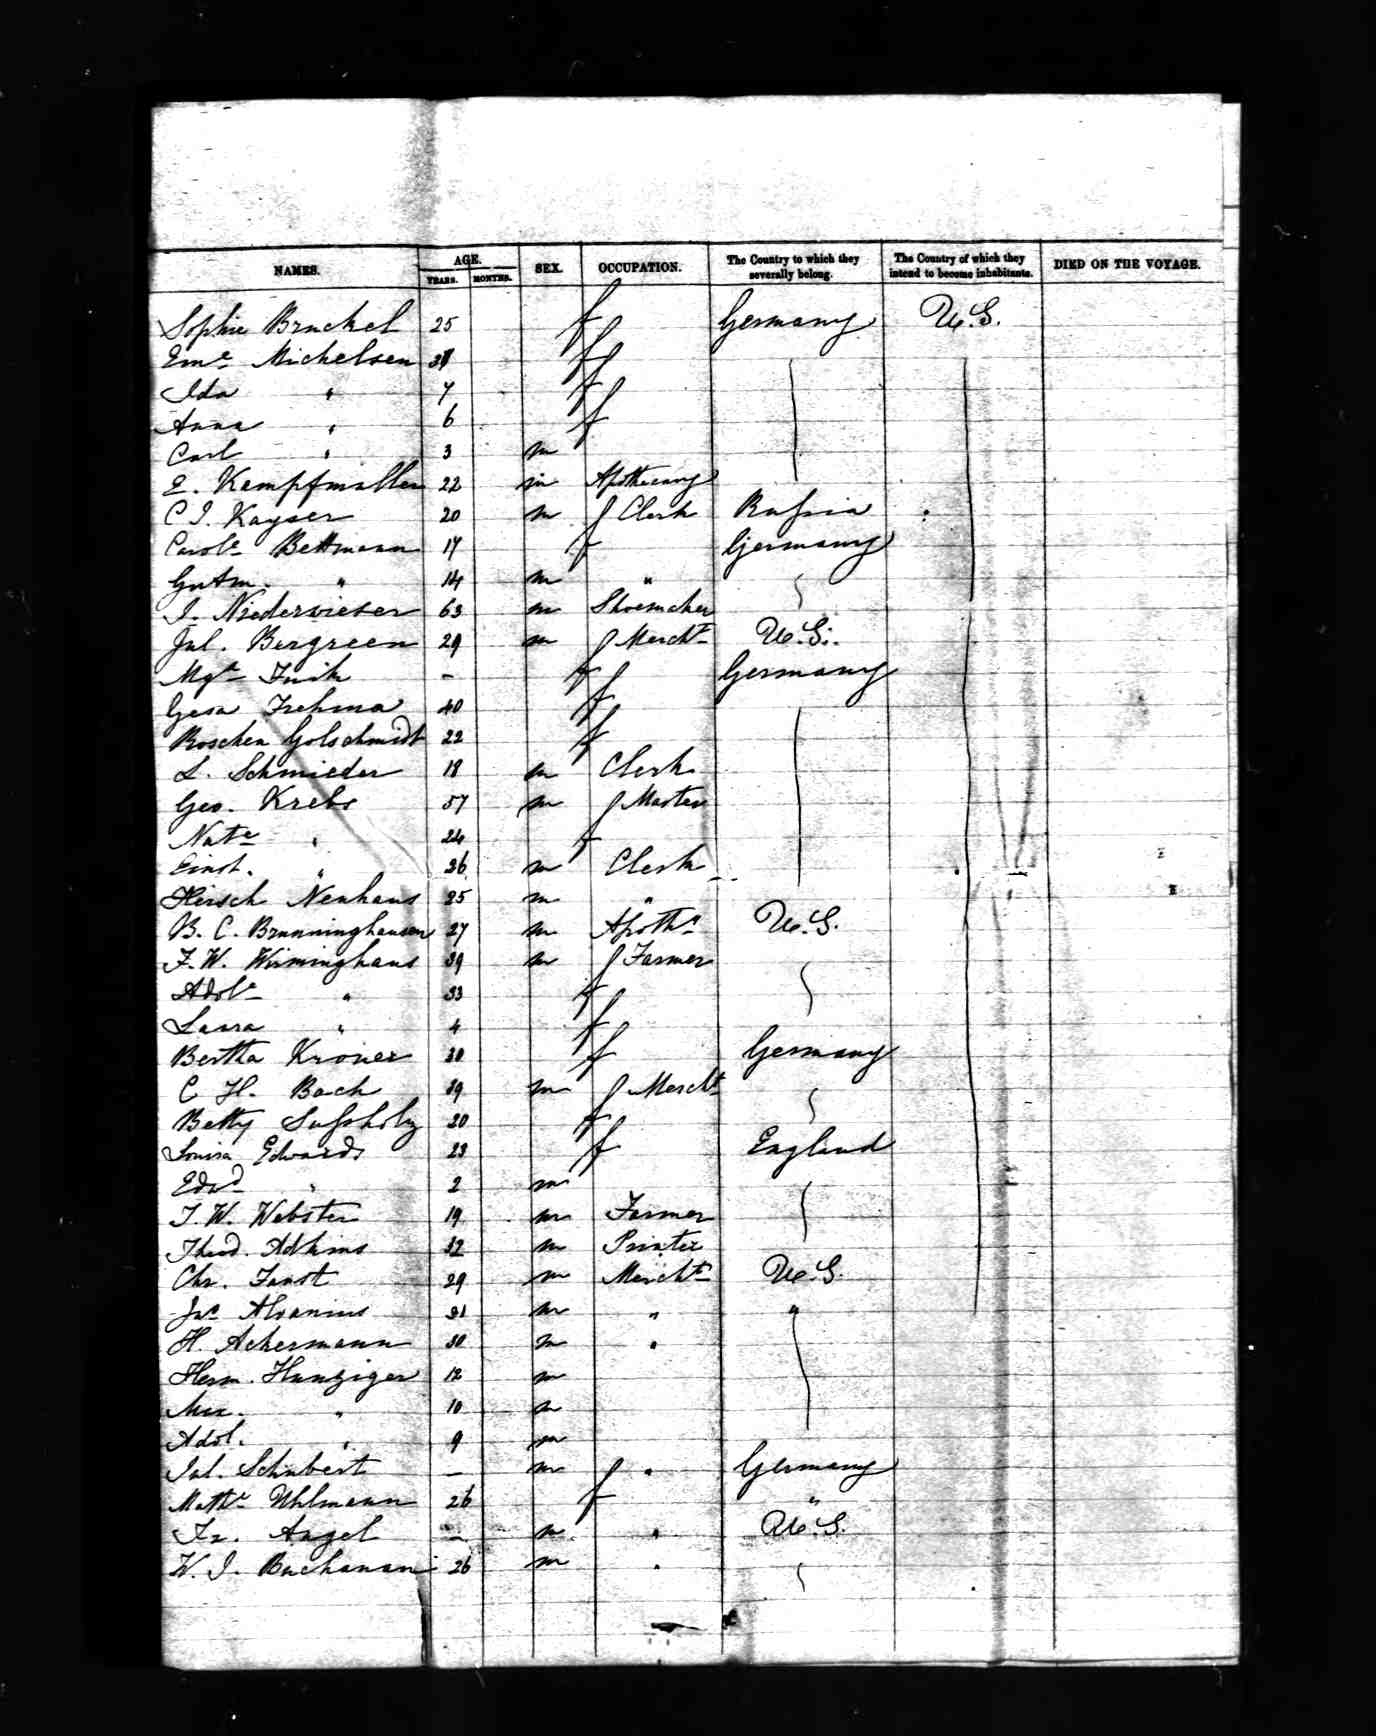 NAMES. AGE. SEX. OCCUPATION. The Country to which they severally belong. The Country of which they intend to become inhabitants. DIED ON THE VOYAGE.
YEARS. MONTHS.
Sophie Bruckel 25 f Germany U.S.
Eme Michelsen f
Ida " 7 f
Anna " 6 f
Carl " 3 m
E. Kempfmuller 22 m Apothecary
C I. Kayser 20 m Clerk Russia
Carole Bettmann 17 f Germany
" 14 m "
I. Niederwieser 63 m Shoemaker
Jul. Bergreen 29 m Mercht U.S.
Mgt - f Germany
Gesa 40 f
Roschen Golschmidt 22 f
L. Schmieder 18 m Clerk
Geo. Krebs 57 m
Nate " 24 f
Ernst. " 26 m Clerk
Hirsch Neuhaus 25 m "
B. C. Brunninghausen 27 m Apothy U.S.
F. W. Wirminghaus 39 m Farmer
Adole " 33 f
Laura " 4 f
Bertha Kroner 30 f Germany
C H. Bach 39 m Mercht
Betty Sussholz 20 f
Louisa Edwards 23 f England
Edwd " 2 m
T. W. Webster 19 m Farmer
Theod. Adkins 32 m Printer
Chr. Faust 29 m Mercht U.S.
Jac 31 m " "
H. Ackermann 30 m "
Herm. Hunziger 12 m
Max. " 10 m
Adol. " 9 m
Jul. Schubert - m " Germany
Mathe Uhlmann 26 f "
Fr. Angel - m " U.S.
W. J. Buchanan 26 m "